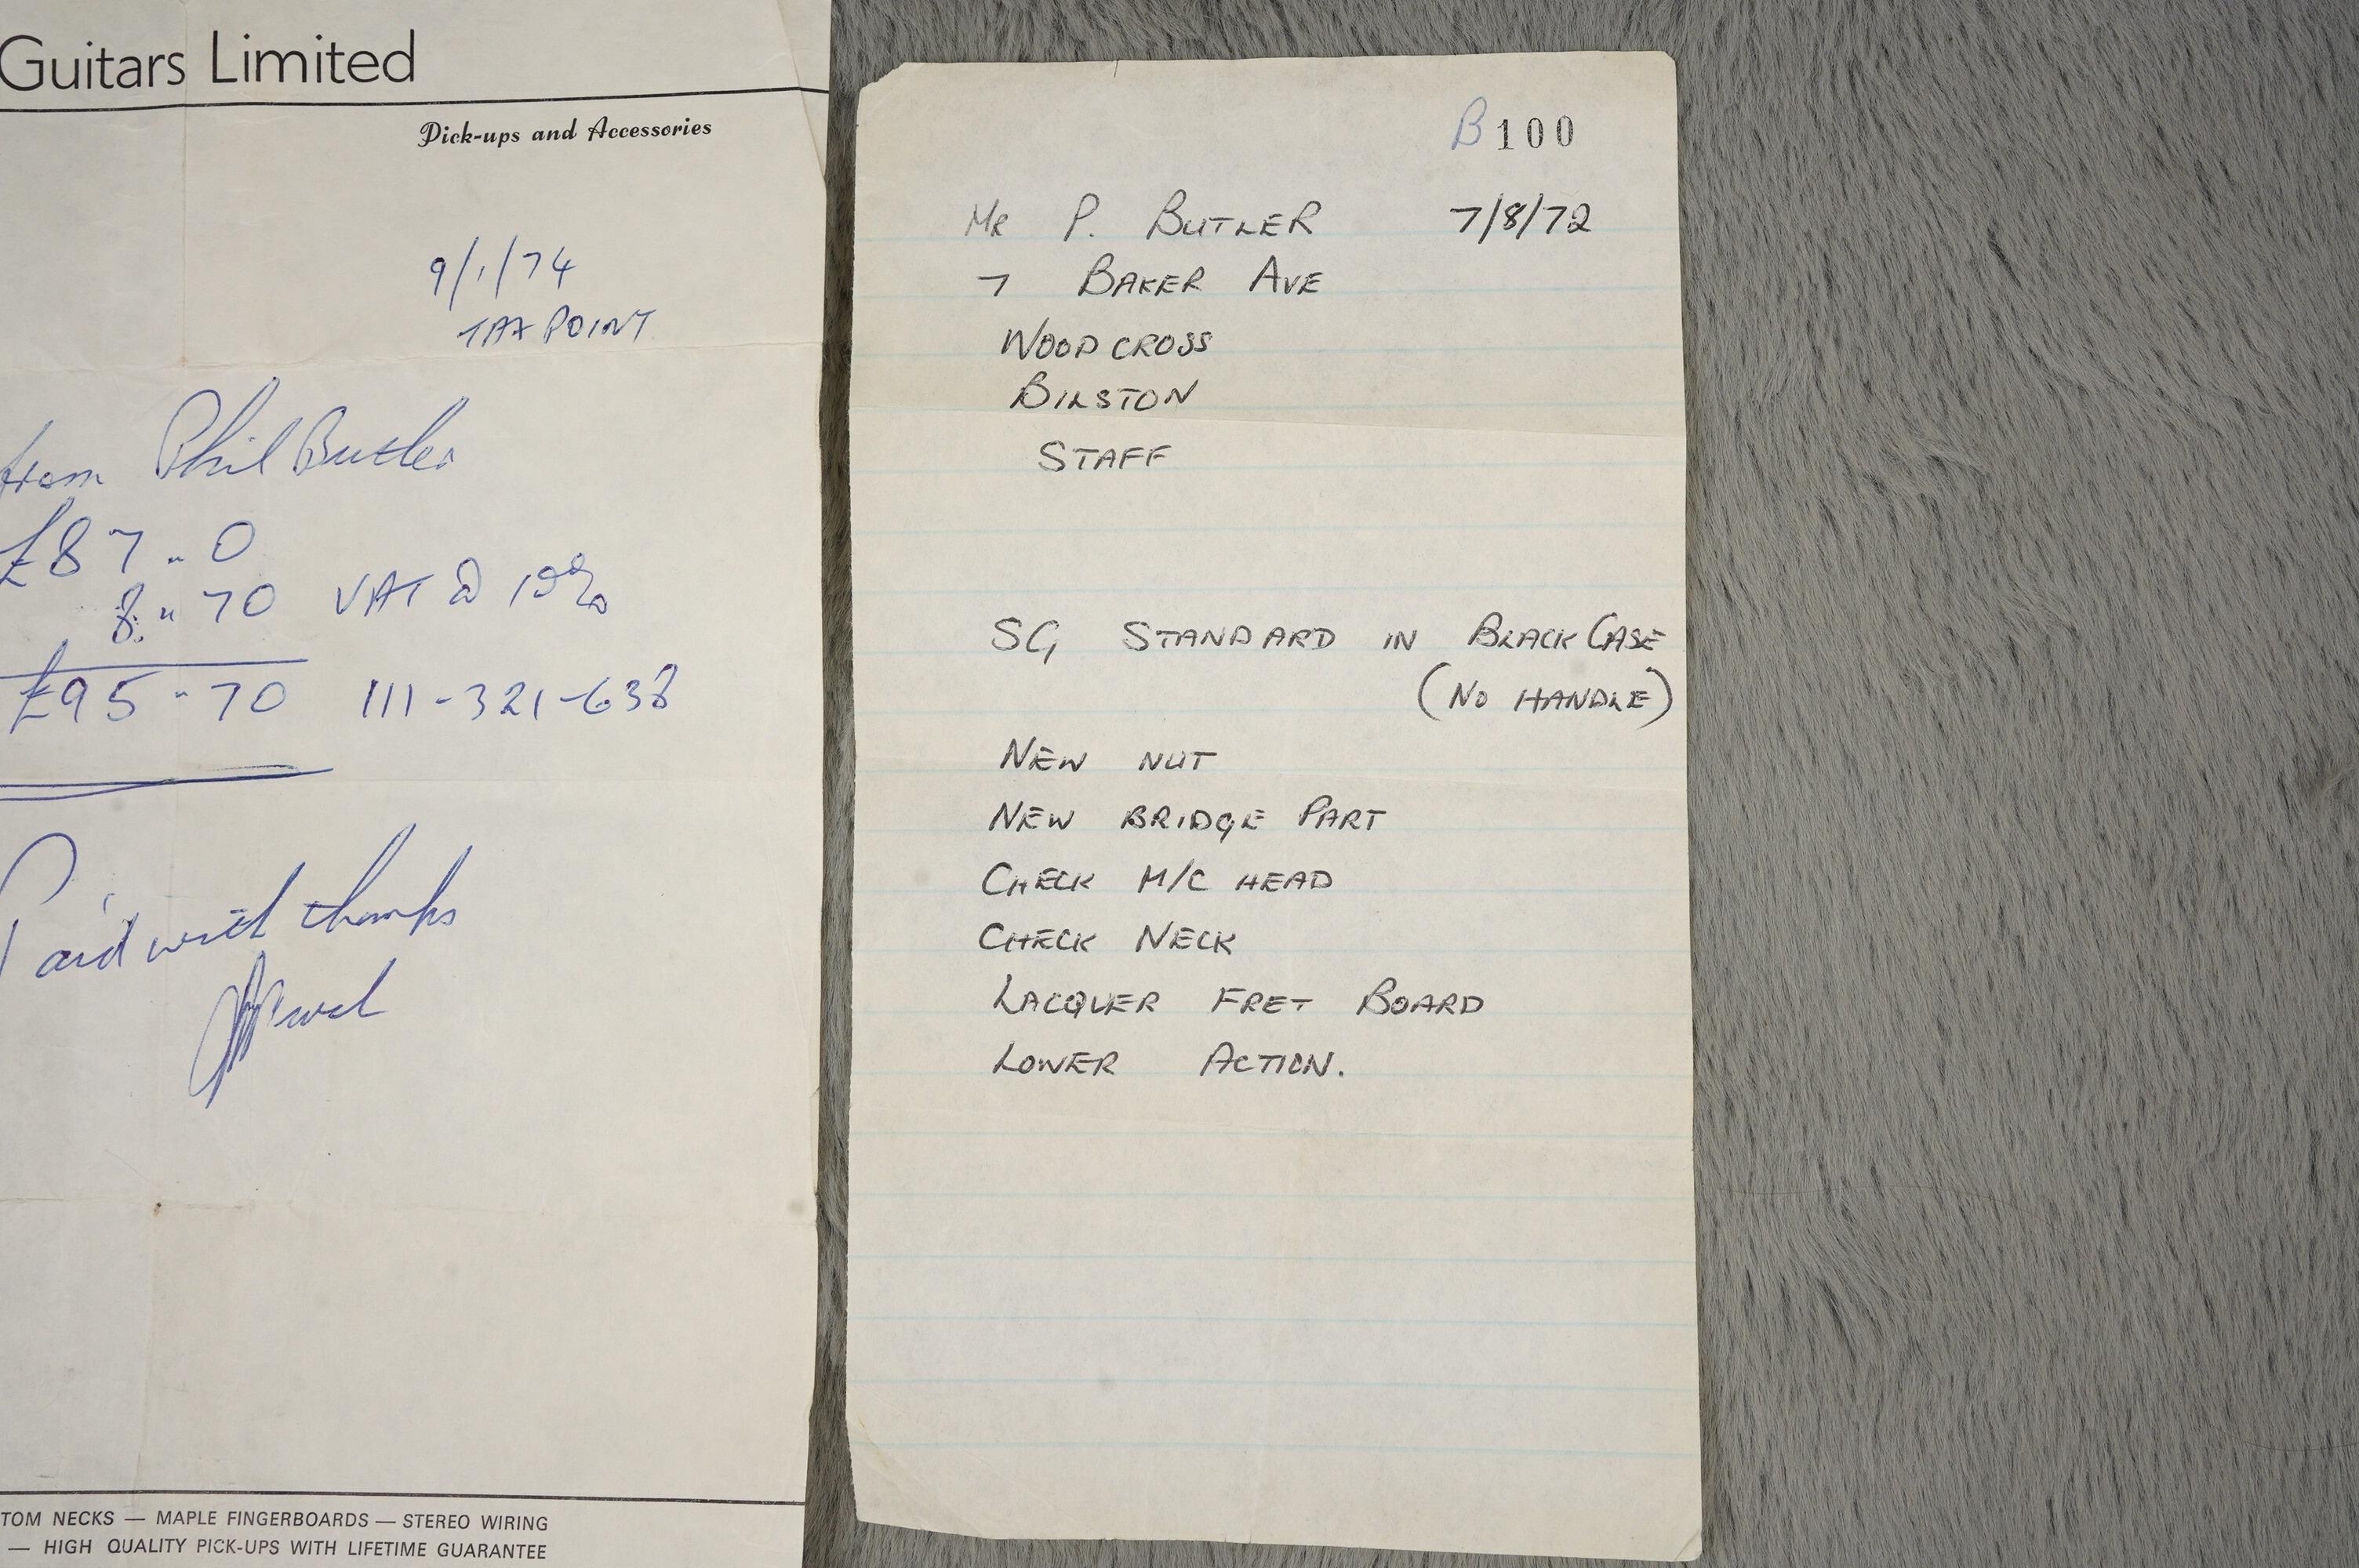 Guitars Limited
Pick-ups and Accessories
9/1/74
TAX POINT
from Phil Butler
£87-0
8-70 VAT @ 10%
£95-70 111-321-638
Paid with thanks
TOM NECKS — MAPLE FINGERBOARDS — STEREO WIRING
— HIGH QUALITY PICK-UPS WITH LIFETIME GUARANTEE
B100
MR P. BUTLER 7/8/72
7 BAKER AVE
WOODCROSS
BILSTON
STAFF
SG STANDARD IN BLACK CASE
(NO HANDLE)
NEW NUT
NEW BRIDGE PART
CHECK M/C HEAD
CHECK NECK
LACQUER FRET BOARD
LOWER ACTION.